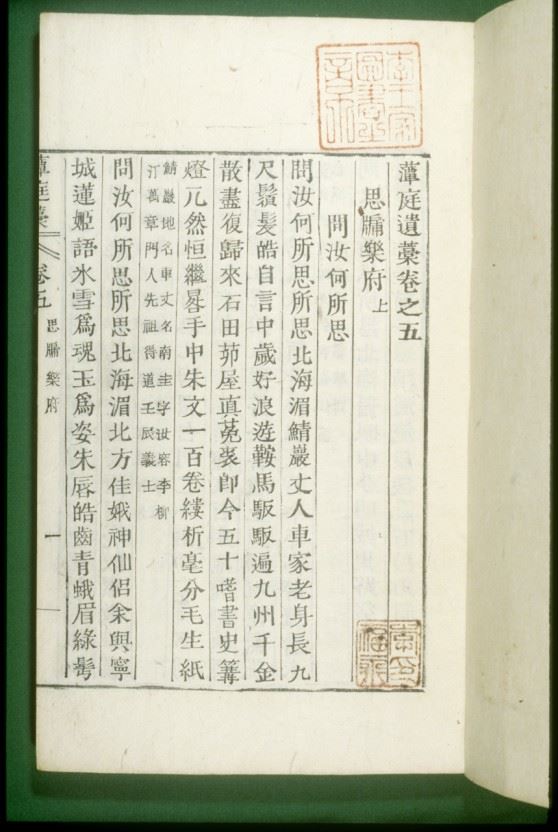 藫庭遺藁卷之五
思牖樂府上
問汝何所思
問汝何所思所思北海湄鯖巖丈人車家老身長九
尺鬚髮皓自言中歲好浪遊鞍馬馭馭遍九州千金
散盡復歸來石田茆屋眞菟裘卽今五十嗜書史篝
燈兀然恒繼晷手中朱文一百卷縷析毫分毛生紙
鯖巖地名車丈名南圭字世容李柳
汀萬章門人先祖得道壬辰義士
問汝何所思所思北海湄北方佳娥神仙侶余與寧
城蓮姬語氷雪爲魂玉爲姿朱唇皓齒靑蛾眉綠髩
藫庭藁
卷五
思牖樂府
一